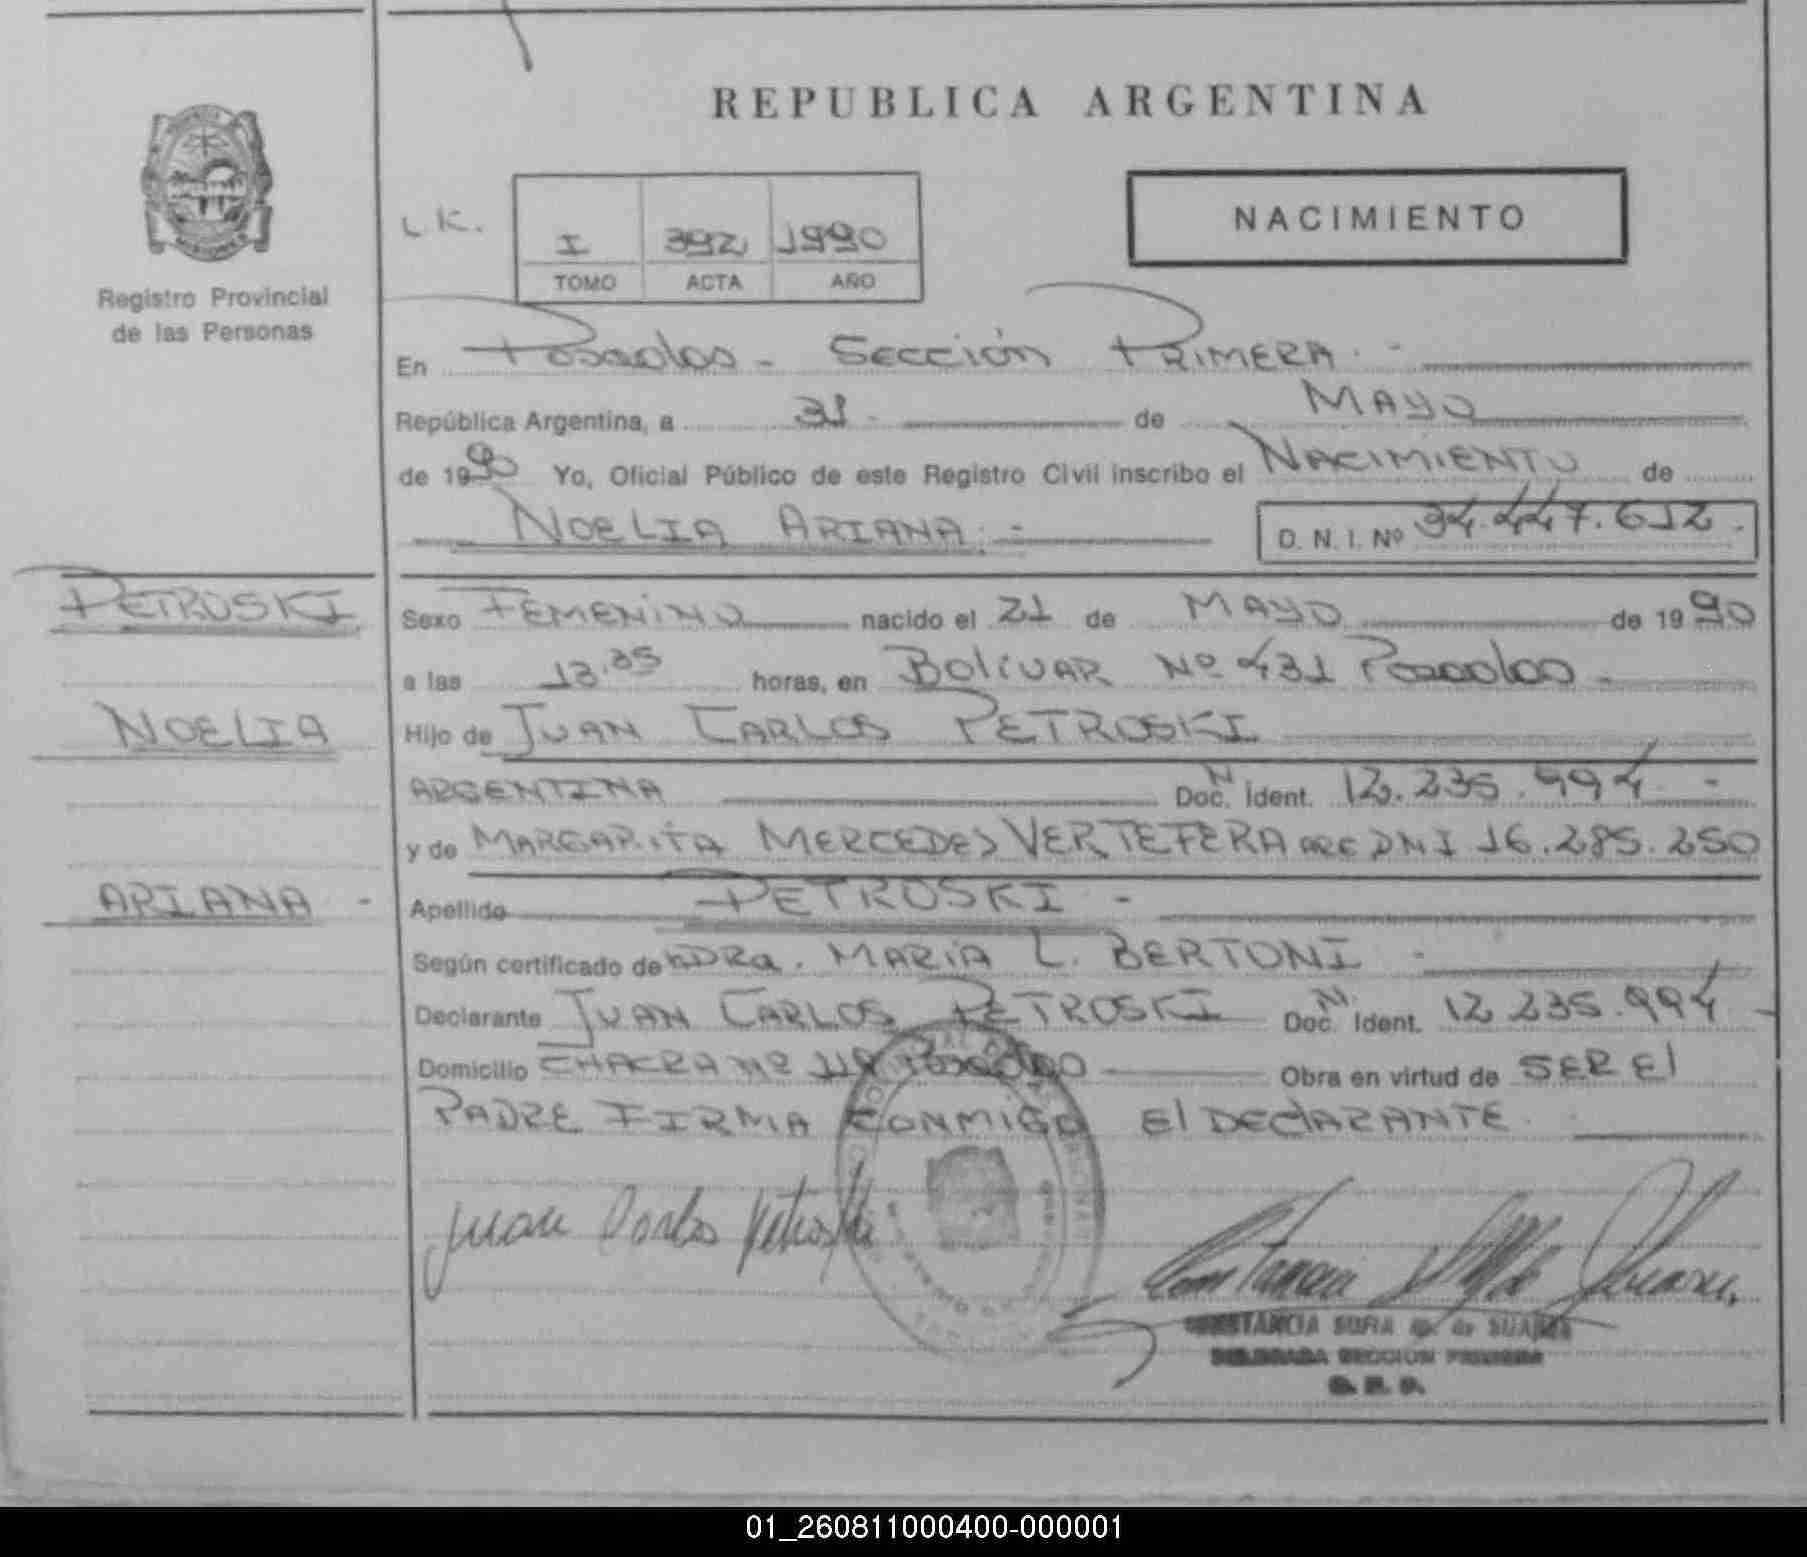 REPUBLICA ARGENTINA
NACIMIENTO
L.K.
I 392 1990
TOMO ACTA AÑO
Registro Provincial
de las Personas
En Posadas - Sección PRIMERA. -
República Argentina, a 31 - de MAYO
de 1990 Yo, Oficial Público de este Registro Civil inscribo el NACIMIENTO de
NOELIA ARIANA. - D. N. I. Nº 34.447.612.
PETROSKI
Sexo FEMENINO nacido el 21 de MAYO de 1990
a las 13.35 horas, en BOLIVAR Nº 431 Posadas -
NOELIA
Hijo de JUAN CARLOS PETROSKI
ARGENTINA Doc. N Ident. 12.235.994 -
y de MARGARITA MERCEDES VERTEFERA ARG DNI 16.285.250
ARIANA -
Apellido PETROSKI -
Según certificado de la DRa. MARIA L. BERTONI -
Declarante JUAN CARLOS PETROSKI Doc. N. Ident. 12 235.994 -
Domicilio CHACRA Nº Posadas Obra en virtud de SER El
PADRE FIRMA CONMIGO El DEClARANTE.
Juan Carlos Petroski
CONSTANCIA SOFIA de SUAREZ
DELEGADA SECCION PRIMERA
01_260811000400-000001